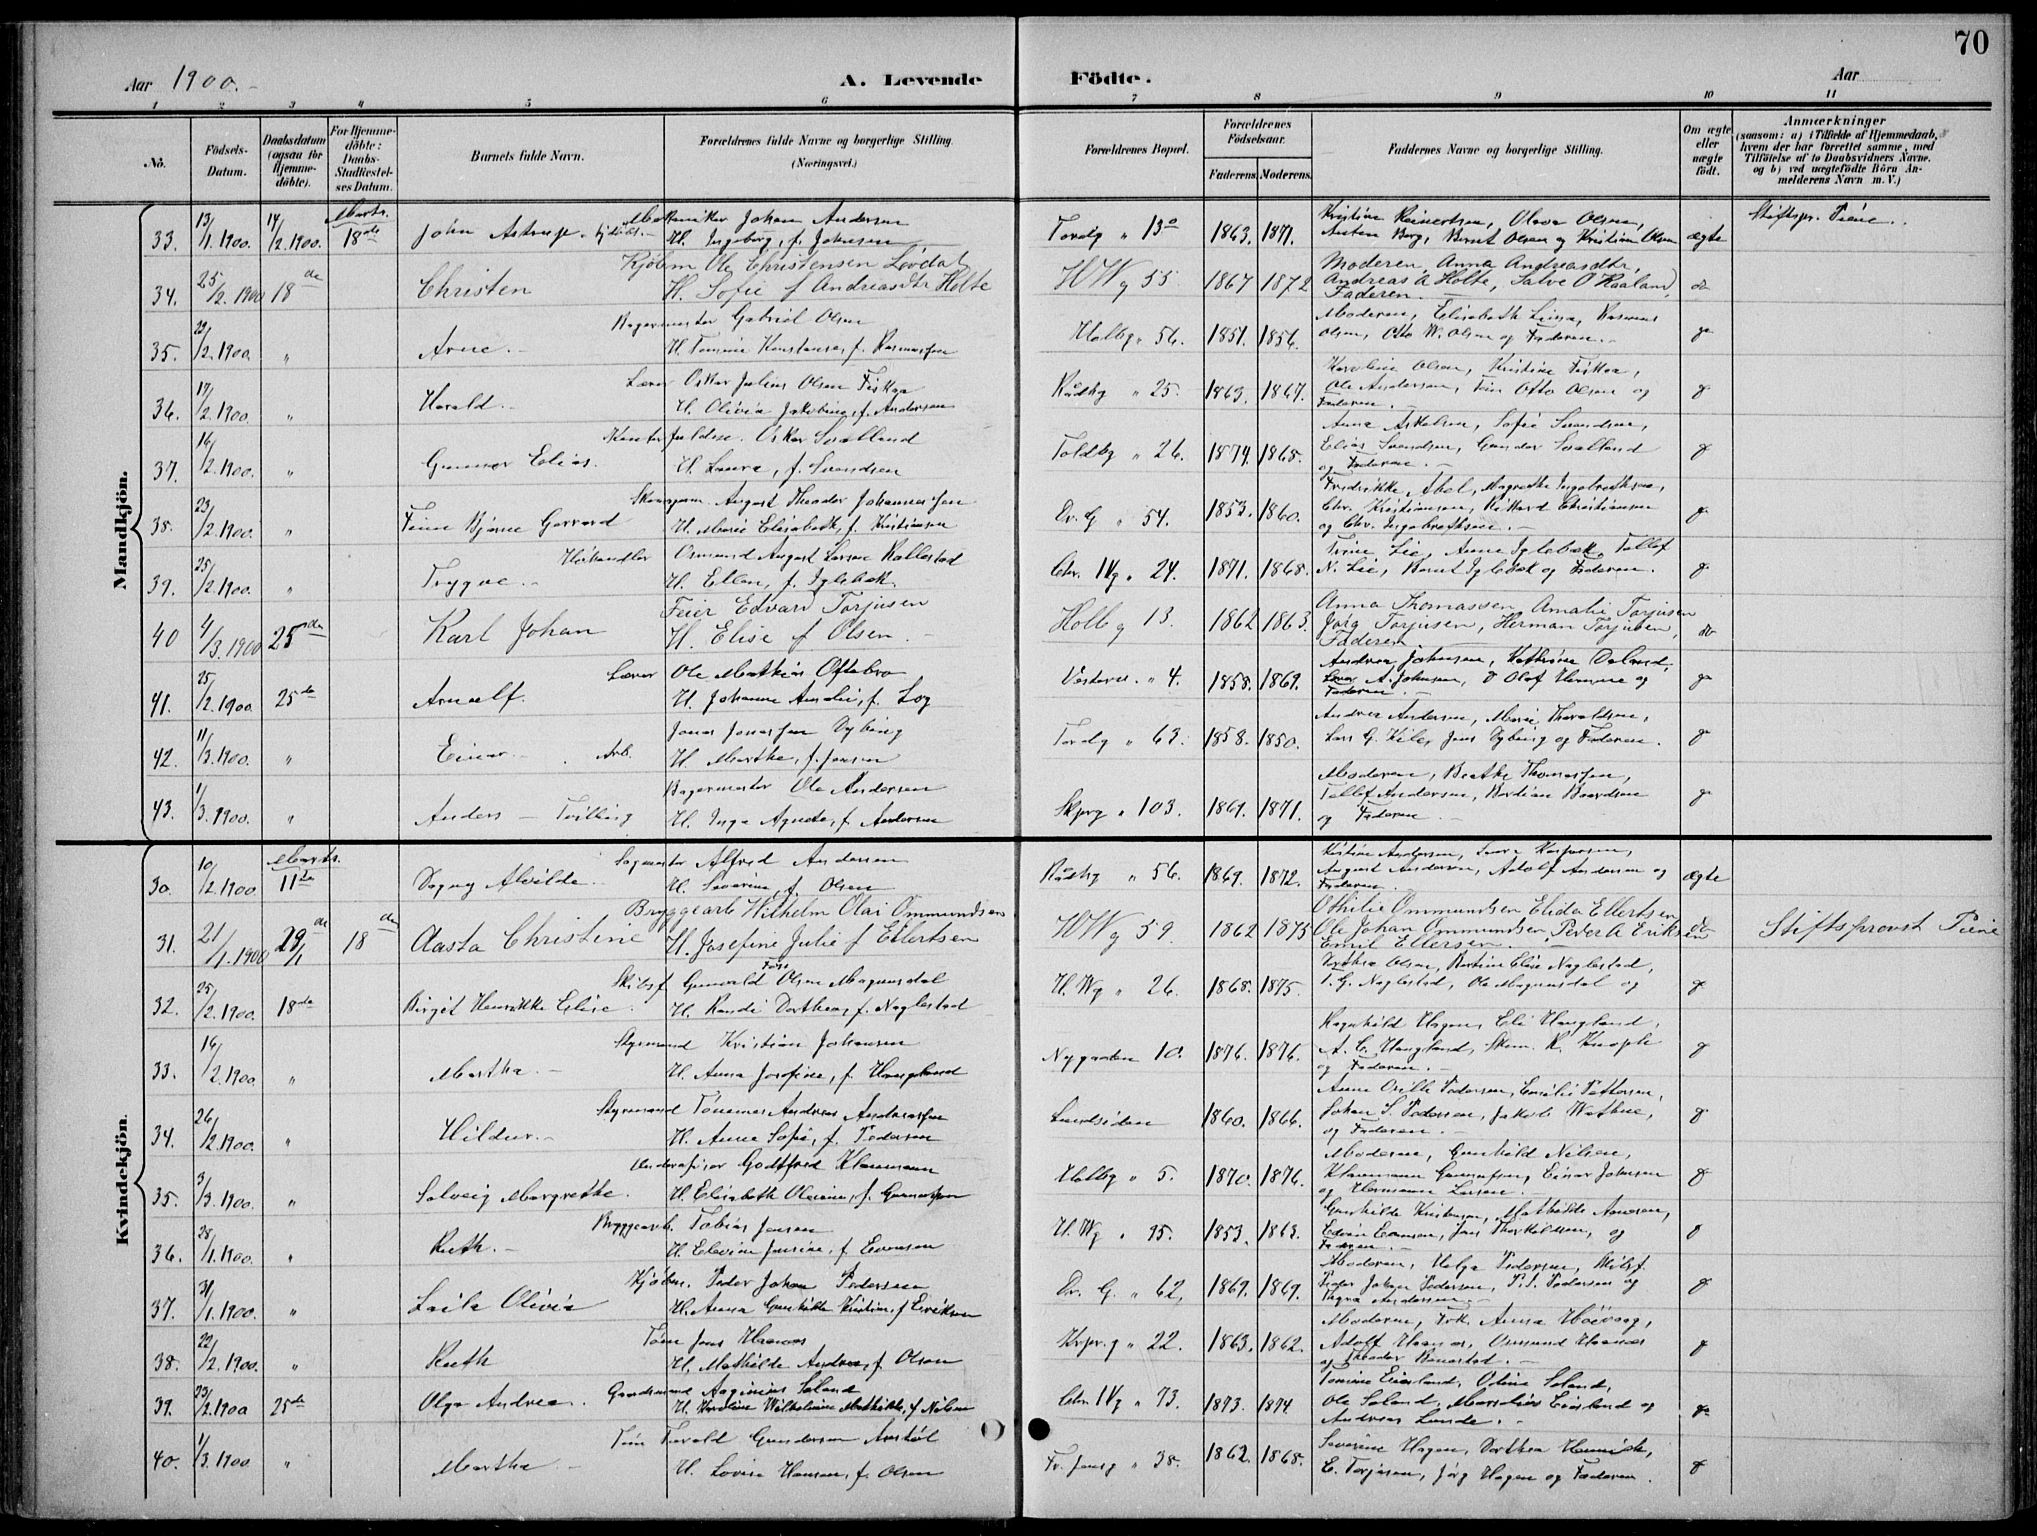 70
Aar 1900.
A. Levende Födte.
Aar
1 2 3 4 5 6 7 8 9 10 11
No.
Födsels-Datum.
Daabsdatum (ogsaa for Hjemmedöbte).
For Hjemmedöbte: Daabs-Stadfæstelses Datum.
Barnets fulde Navn.
Forældrenes fulde Navne og borgerlige Stilling (Næringsvei.)
Forældrenes Bopæl.
Forældrenes Födselsaar.
Faderens. Moderens.
Faddernes Navne og borgerlige Stilling.
Om ægte eller uægte födt.
Anmærkninger
(saasom: a) i Tilfælde af Hjemmedaab, hvem der har forrettet samme, med Tilföielse af to Daabsvidners Navne. og b) ved uægtefödte Börn Anmelderens Navn m. V.)
Mandkjön.
33. 13/1.1900. 14/2.1900. Marts. 18de John Astrup. Johan Andersen
H. Ingeborg, f. Johnsen
Tordg " 13a 1863. 1871. Kristine Reinertsen, Olava Olsen,
Berg, Bernt Olsen og Kristian Olsen ægte Stiftspr. Tiene.
34. 25/2.1900 18de Christen Kjøbm Ole Christensen Løvdal
H. Sofie f Andreasdtr Holte
H Wg 55 1867 1872 Moderen, Anna Andreasdtr,
Andreas A Holte, Salve O Haaland,
Faderen. do
35. 22/2.1900. " Arne. Bagermester Gabriel Olsen
H. Tomine Konstanse, f. Rasmussen
Holbg " 56. 1851. 1856. Moderen, Elisabeth Rasmus
Olsen, Otto W. Olsen og Faderen.
36. 17/2.1900. " Harald. Lærer Oskar Julius Olsen Fiskaa
H. Olivia Jakobine, f. Andersen
Rådhg " 25. 1863. 1867. Karoline Olsen, Kristine Fiskaa,
Ole Andersen, Otto Olsen og
Faderen.
37. 16/2.1900. " Gunnar Elias. Oskar
H. Laura, f. Svendsen
Toldbg " 26. 1874. 1868. Anna Sofie Svendsen,
Elias Svendsen, Gunder
og Faderen.
38. 23/2.1900. " Bjarne Gerrard August Theodor Johannessen
H. Marie Elisabeth, f. Kristiansen
Dr. G " 54. 1853. 1860. Fredrikke Abel, Magrethe Ingebrethsen,
Chr. Kristiansen, Rikard Christiansen
og Chr. Ingebrethsen.
39. 25/2.1900. " Trygve. Osmund August Larsen Rallestad
H. Ellen, f. Iglebæk.
Chr. IVg " 24. 1871. 1868. Trine Lie, Anne Iglebæk, Tellef
N. Lie, Bernt Iglebæk og Faderen.
40 4/3.1900 25de Karl Johan Feier Edvard Torjusen
H. Elise f Olsen
Holbg 13. 1862 1863. Anna Thomassen Amalie Torjusen
Jørg Torjusen, Herman Torjusen,
Faderen do
41. 25/2.1900 25de Arnulf. Lærer Ole Mathias Oftebro
H. Johanne Amalie, f. Log
Vesterv. " 4. 1858. 1869. Andrea Johnsen, Kathrine
A. Johnsen, Olaf og
Faderen.
42. 11/3.1900. " Einar. Arb. Jonas Jonassen Dybing
H. Marthe, f. Jensen
Tordg " 63. 1858. 1850. Andrea Andersen, Marie Thoraldsen,
Lars G. Kile, Jens Dybing og Faderen.
43. 1/3.1900. " Anders - Tvilling Bagermester Ole Andersen
H. Inga Agnete, f. Andersen
Skprg " 103. 1869. 1871. Moderen, Berthe Thomassen,
Tellef Andersen,
og Faderen
Kvindekjön.
30. 10/2.1900. Marts. 11te Dagny Alvilde. Alfred Andersen
H. Severine, f. Olsen
Rådhg " 56. 1869. 1872. Kristine Andersen, Laura
August Andersen, Adolf Andersen og
Faderen. ægte
31. 21/1.1900 29de/1 18de Aasta Christine Bryggearb Wilhelm Olai Ommundsen
H. Josefine Julie f Ellertsen
H Wg 59. 1862 1875 Othilie Ommundsen Elida Ellertsen
Ole Johan Ommundsen Peder A Eriksen
Emil Ellersen. do Stiftsprovst Tiene
32. 25/2.1900. 18de Birgit Henrikke Elise. Skibsf Gunvald Foss Olsen Magunsdal
H. Randi Dorthea, f. Naglestad
H. Wg " 26. 1868. 1875. Dorthea Olsen, Bertine Elise Naglestad,
G. Naglestad, Ole Magunsdal og
33. 16/2.1900. " Martha. Styrmand Kristian Johansen
H. Anna Josefine, f. Haugland
Nygaaden 10. 1876. 1876. Ragnhild Hagen, Eli Haugland,
A. C. Haugland, Skom. K. Knoph
og Faderen.
34. 26/2.1900. " Hildur. Styrmand Tønnes Andreas Andreassen
H. Anna Sofie, f. Pedersen
Lundsiden 1860. 1866. Anne Orille Pedersen, Emilie Pettersen,
Johan S. Pedersen, Jakob Wathne,
og Faderen.
35. 3/3.1900. " Solveig Margrethe. Godtfred Klausmann
H. Elisabeth f. Gunnarsen
Holbg " 5. 1870. 1876. Moderen, Gunhild Nilsen,
Klausmann Gunnarsen, Einar Johnsen
og Hermann Larsen.
36. 28/1.1900. " Ruth. Bryggearb. Tobias Jensen
H. Elevine Jensine, f. Evensen
H. Wg " 95. 1853. 1863. Gunhilde Kristensen, Mathilde
Edvin Evensen, Jens Thorkildsen, og
Faderen.
37. 31/1.1900. " Laila Olivia Kjøbm. Peder Johan Pedersen
H. Anna Gunhilde Kristine, f Eriksen
Dr. G. " 62. 1869. 1869. Moderen, Helga Pedersen, Skibsf.
Peder Johan Pedersen, P. S. Pedersen og
Thyra Andersen.
38. 22/2.1900. " Ruth Tøm Jens Haanes
H. Mathilde Andrea, f. Olsen
Krprg " 22. 1863. 1862. Moderen, Frk. Anna Høivaag,
Adolf Haanes, Osmund Haanes
og Theodor Benestad.
39. 23/2.1900 25de Olga Andrea. Asginius Søland
H. Karoline Wilhelmine Mathilde, f Nilsen
Chr. IVg " 73. 1873. 1874. Tomine Eieland, Odine Søland,
Ole Søland, Eieland og
Andreas Lunde.
40. 1/3.1900 " Martha. Torvald Gundersen Austøl
H. Lovise Hansen, f. Olsen
Fr. fensg " 38. 1862. 1868. Severine Hagen, Dorthea Henrich,
E. Torjusen, Jørg Hagen og Faderen.